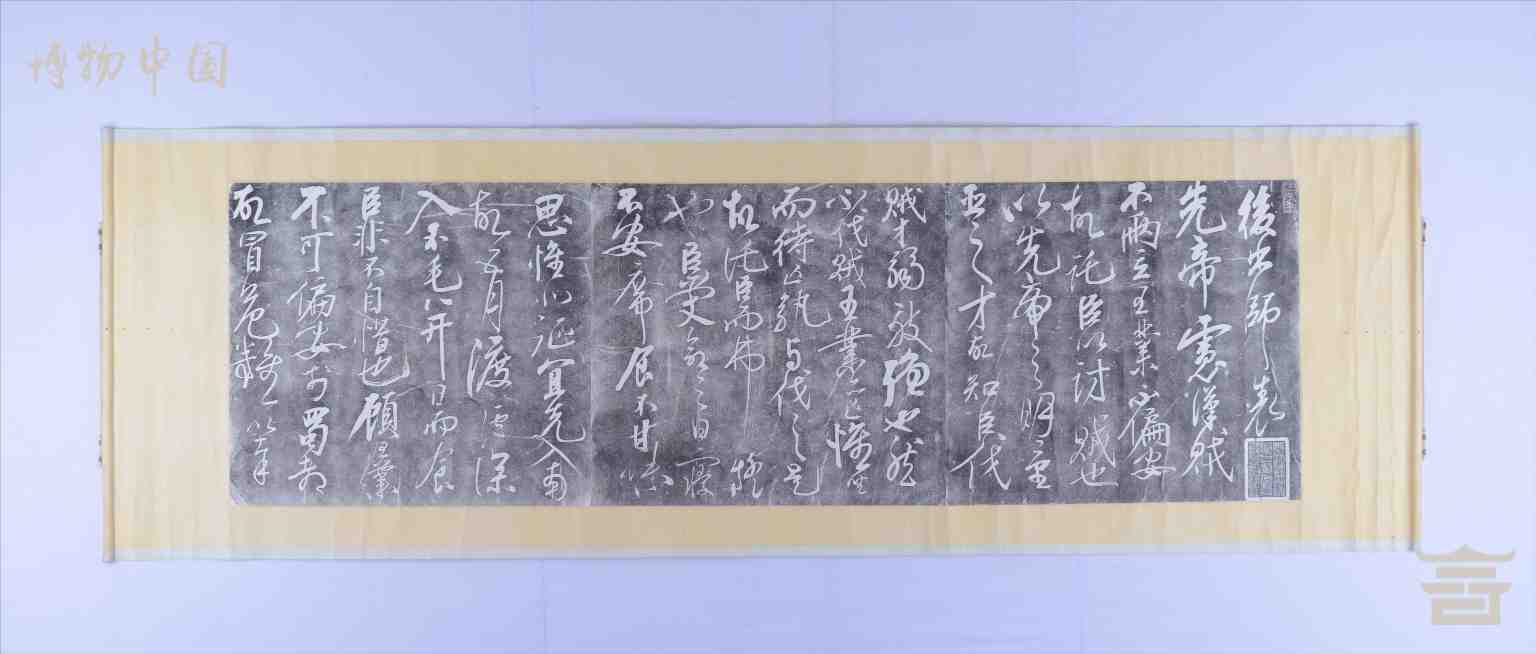 博物中国
後出師表
先帝慮漢賊
不兩立王業不偏安
故託臣以討賊也
以先帝之明量
臣之才故知臣伐
賊才弱敵彊也然
不伐賊王業亦亡惟坐
而待亡孰與伐之是
故託臣而弗疑
也臣受命之日寢
不安席食不甘味
思惟北征宜先入南
故五月渡瀘深
入不毛并日而食
臣非不自惜也顧王業
不可偏安於蜀都
故冒危難以奉